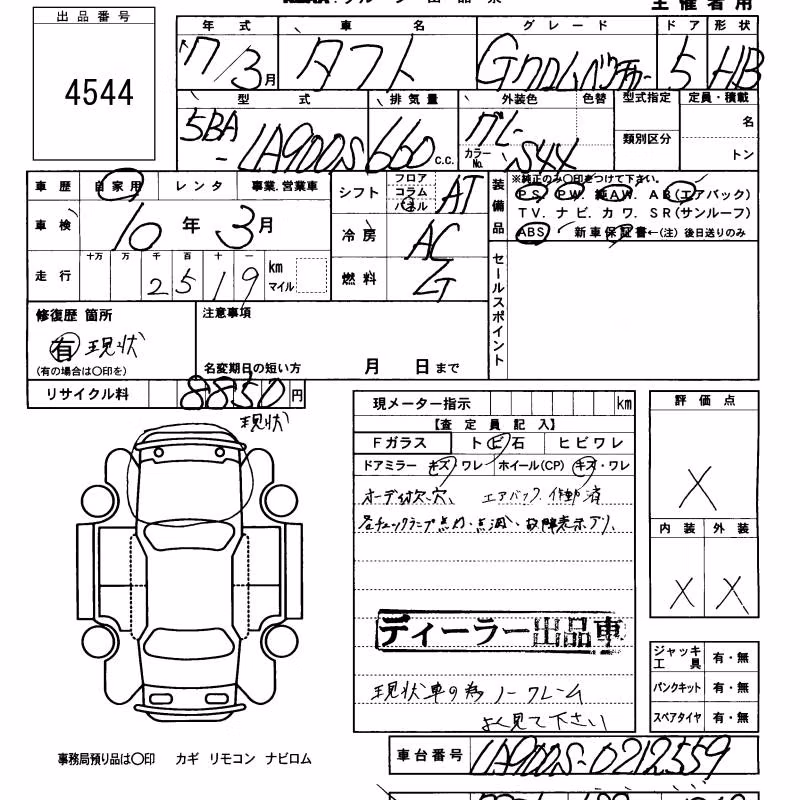 主催者用
出品番号
4544
年式 車名 グレード ドア 形状
7/3月 タフト Gクロムベンチャー 5 HB
型式 排気量 外装色 色替 型式指定 定員・積載
5BA-LA900S 660 c.c. グレー カラーNo. S44 類別区分 名
トン
車歴 自家用 レンタ 事業.営業車 シフト フロア コラム パネル AT
車検 10年3月 冷房 AC
走行 十万 万 千 百 十 一 2519 km マイル 燃料 G
装備品 ※純正のみ〇印をつけて下さい。
PS. PW. 純AW. AB(エアバック)
TV. ナビ. カワ. SR(サンルーフ)
ABS. 新車保証書←(注) 後日送りのみ
セールスポイント
修復歴 箇所 注意事項
有 現状
(有の場合は〇印を) 名変期日の短い方 月 日まで
リサイクル料 8850円
現状
現メーター指示 km
【査定員記入】
Fガラス トビ石 ヒビワレ
ドアミラー キズ・ワレ ホイール(CP) キズ・ワレ
オーディオ欠、穴、エアバック作動済
各チェックランプ点灯・点滅・故障表示アリ、
ディーラー出品車
現状車の為ノークレーム
よく見て下さい
評価点
X
内装 外装
X X
ジャッキ工具 有・無
パンクキット 有・無
スペアタイヤ 有・無
事務局預り品は〇印 カギ リモコン ナビロム
車台番号 LA900S-0212559